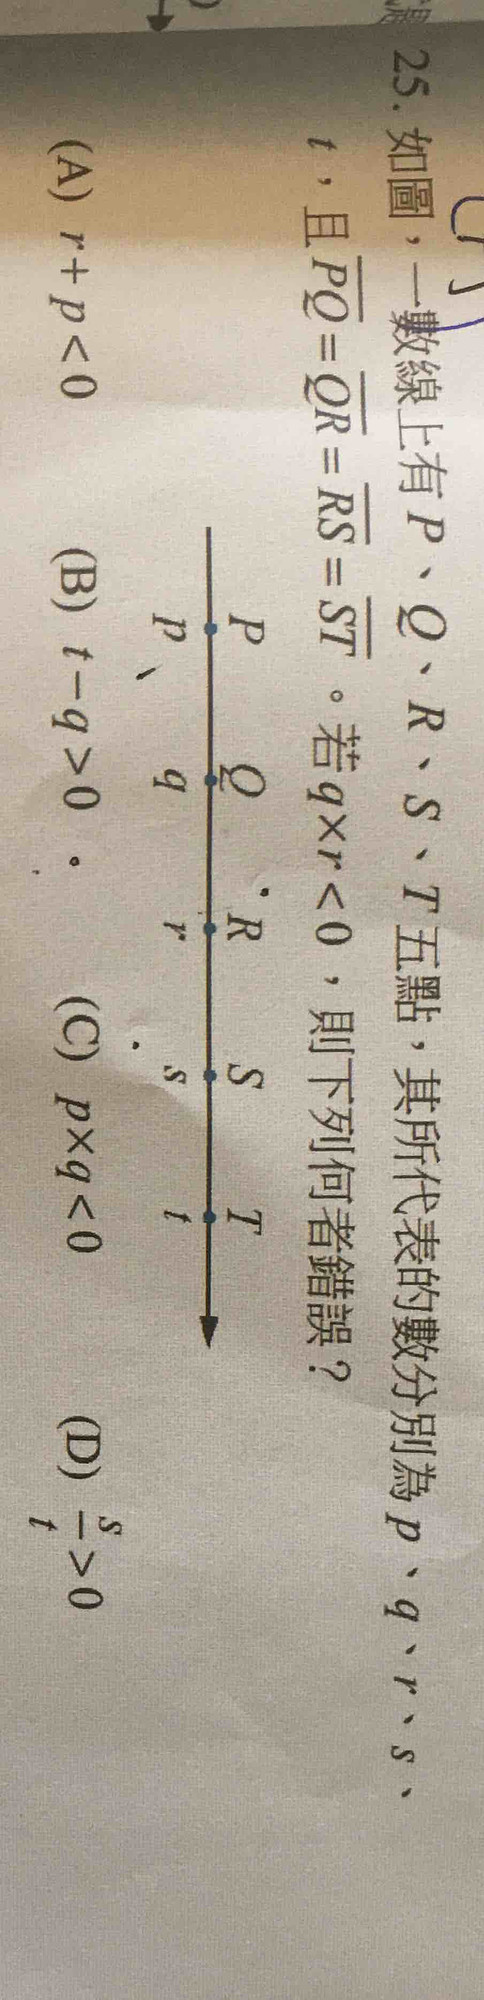 25. 如圖，一數線上有 P、Q、R、S、T 五點，其所代表的數分別為 p、q、r、s、
t，且 \overline{PQ} = \overline{QR} = \overline{RS} = \overline{ST}。若 q×r<0，則下列何者錯誤？
P Q R S T
p q r s t
(A) r+p<0 (B) t−q>0 (C) p×q<0 (D) \frac{s}{t}>0